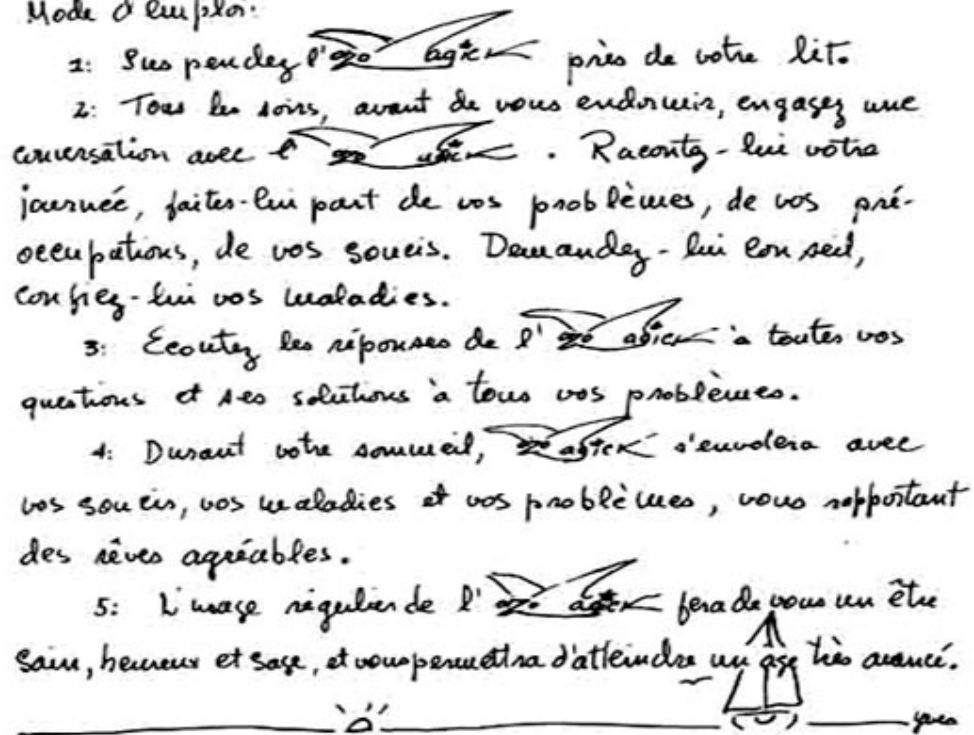 Mode d'emploi:
1: Suspendez l' agick près de votre lit.
2: Tous les soirs, avant de vous endormir, engagez une
conversation avec l' agick. Racontez-lui votre
journée, faites-lui part de vos problèmes, de vos pré-
occupations, de vos soucis. Demandez-lui conseil,
confiez-lui vos maladies.
3: Ecoutez les réponses de l' agick à toutes vos
questions et ses solutions à tous vos problèmes.
4: Durant votre sommeil, agick s'envolera avec
vos soucis, vos maladies et vos problèmes, vous rapportant
des rêves agréables.
5: L'usage régulier de l' agick fera de vous un être
sain, heureux et sage, et vous permettra d'atteindre un âge très avancé.
yves